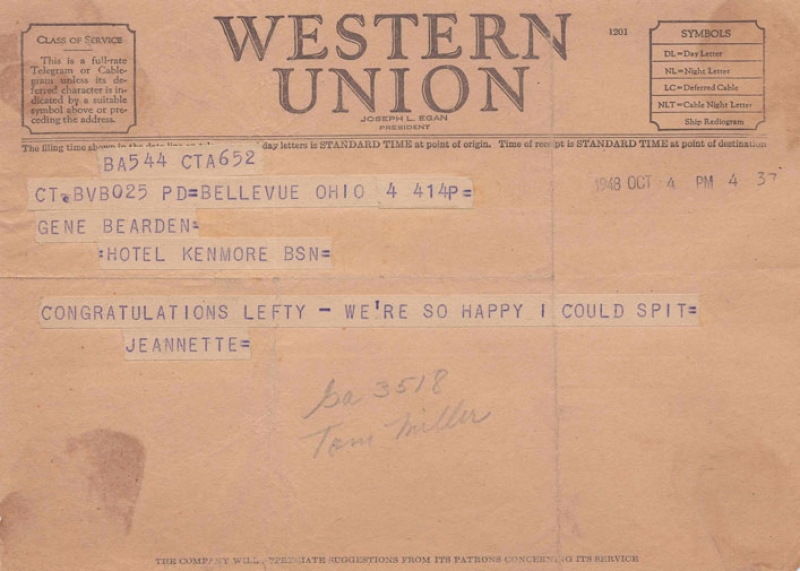 CLASS OF SERVICE
This is a full-rate
Telegram or Cable-
gram unless its de-
ferred character is in-
dicated by a suitable
symbol above or pre-
ceding the address.
WESTERN
UNION
JOSEPH L. EGAN
PRESIDENT
1201
SYMBOLS
DL=Day Letter
NL=Night Letter
LC=Deferred Cable
NLT=Cable Night Letter
Ship Radiogram
The filing time shown in the date line on day letters is STANDARD TIME at point of origin. Time of receipt is STANDARD TIME at point of destination
BA544 CTA652
CT.BVB025 PD=BELLEVUE OHIO 4 414P=
1948 OCT 4 PM 4 37
GENE BEARDEN=
=HOTEL KENMORE BSN=
CONGRATULATIONS LEFTY - WE'RE SO HAPPY I COULD SPIT=
JEANNETTE=
3518
Tom Miller
THE COMPANY WILL APPRECIATE SUGGESTIONS FROM ITS PATRONS CONCERNING ITS SERVICE